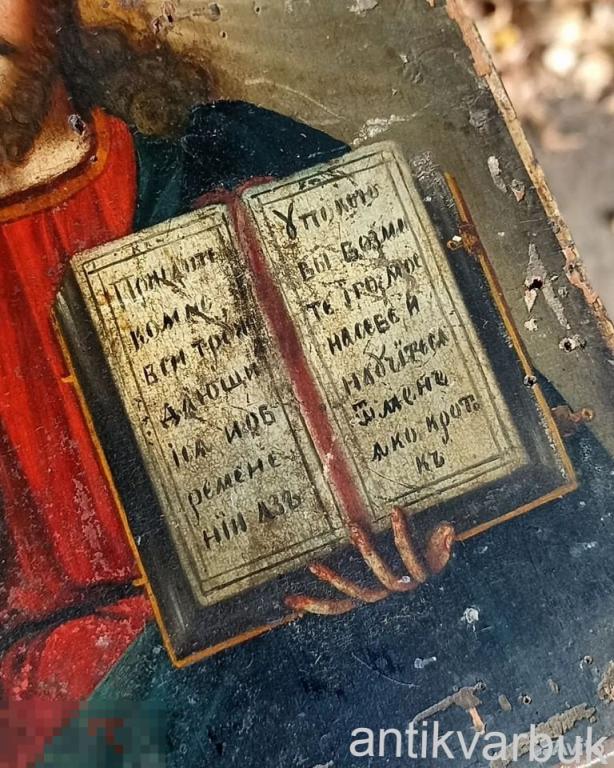 комнѣ
вси трꙋж
дающи
іся иоб
ремене
ніи азъ
Ꙋпокою
вы возми
те іго мое
насебе и
наꙋчітеся
Ѿменъ
яко крот
къ
antikvarbuk